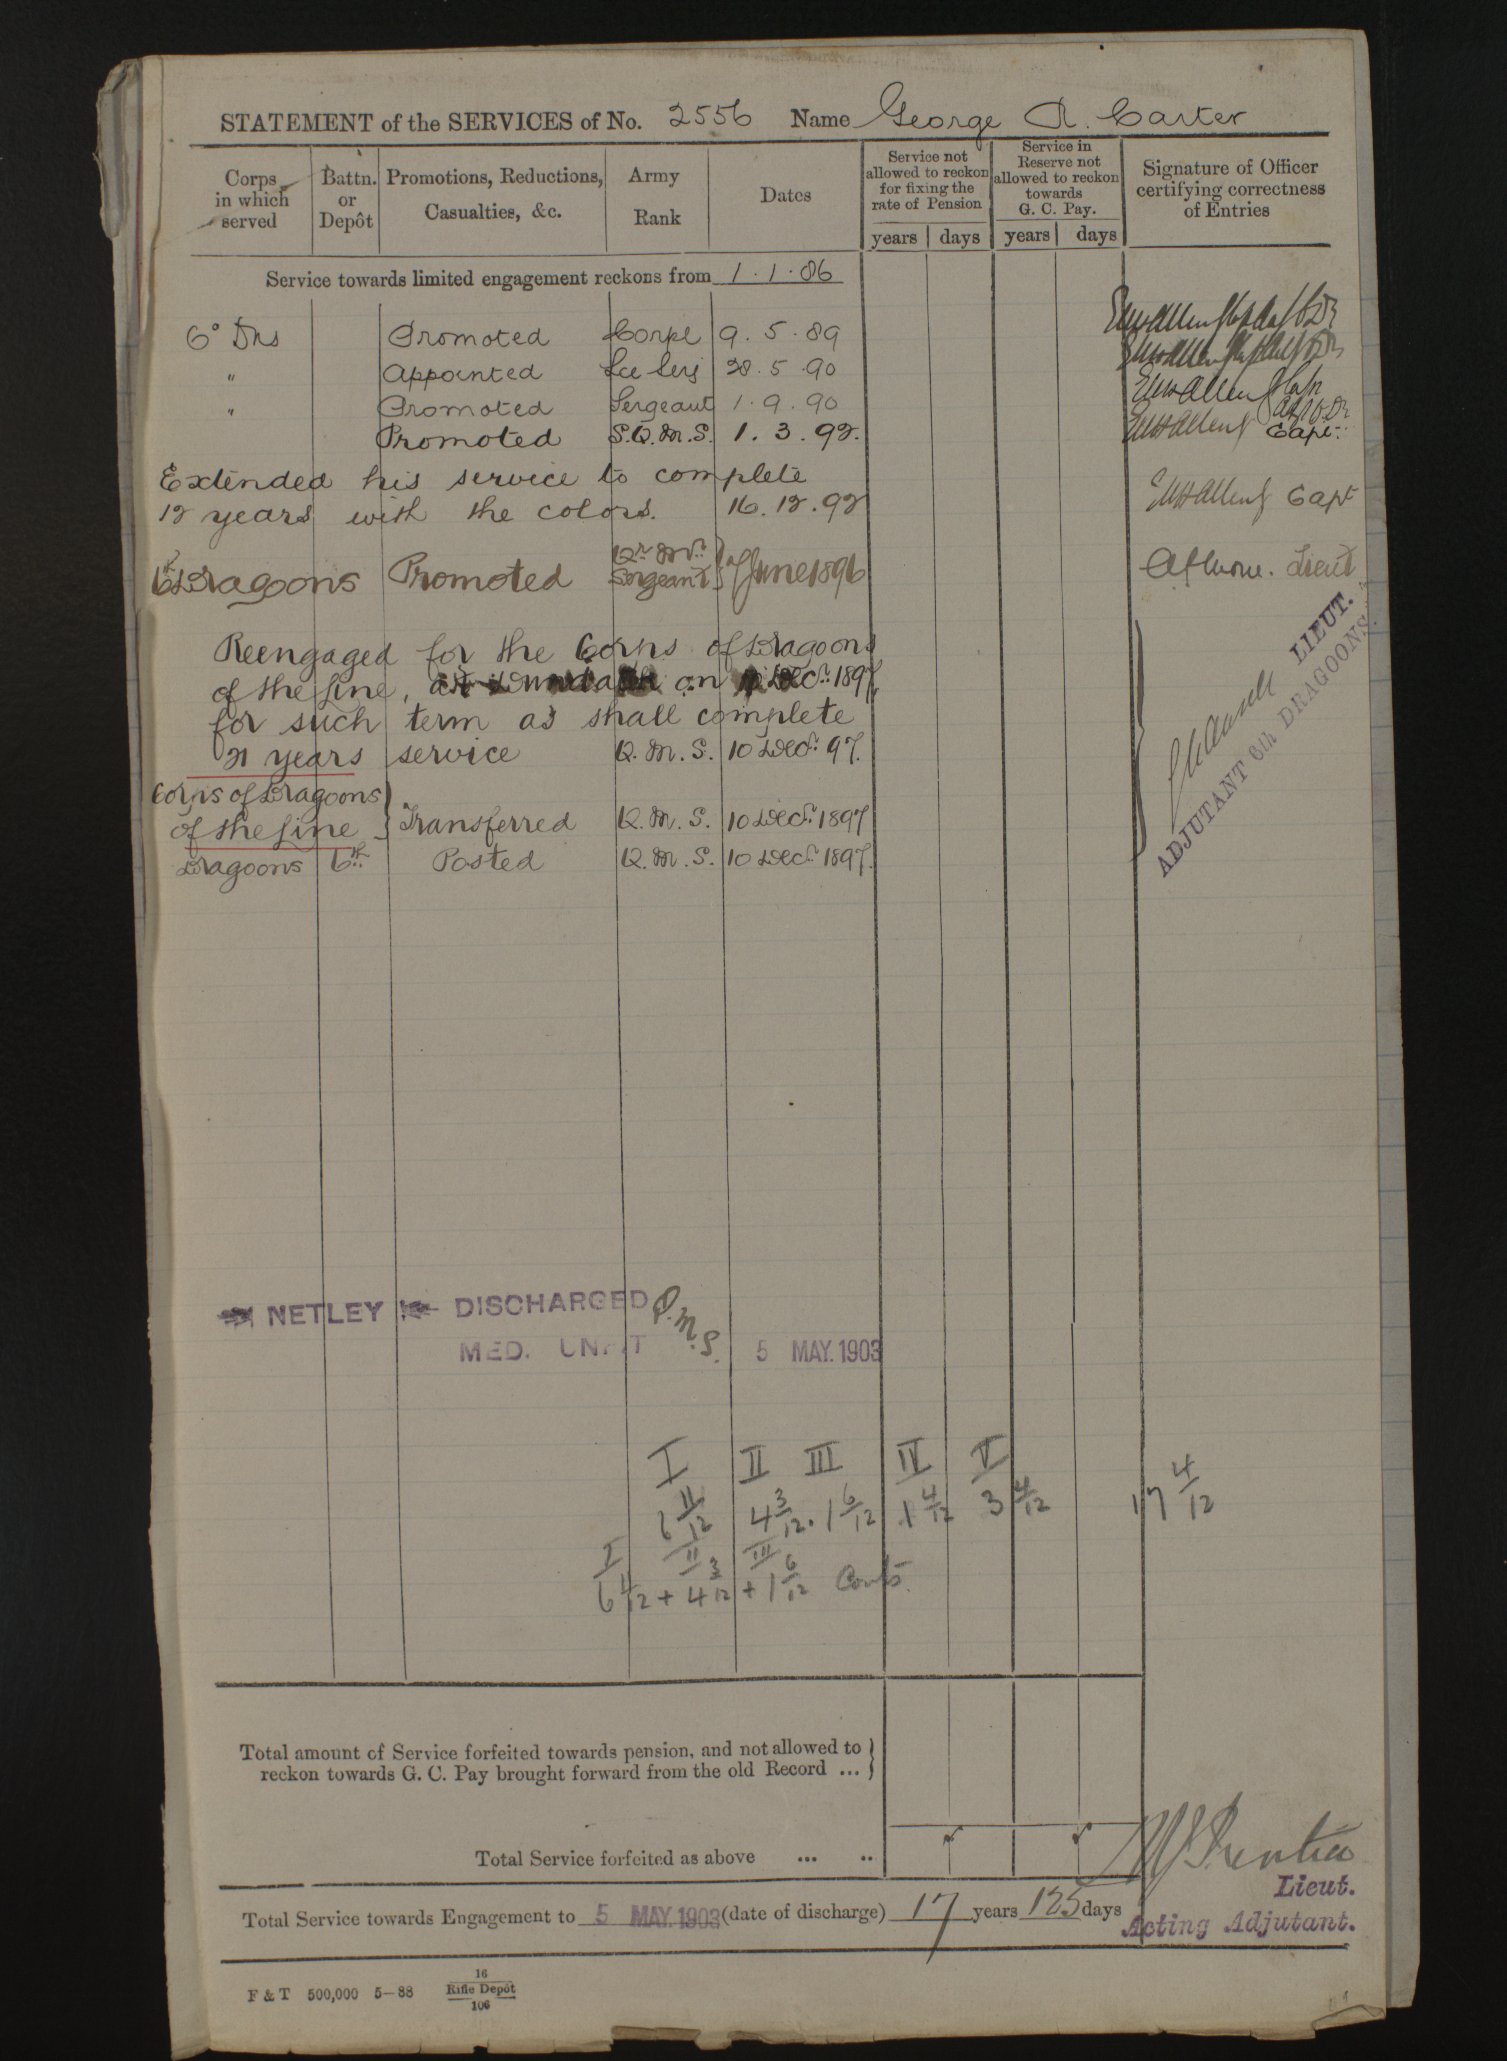 STATEMENT of the SERVICES of No. 2556 Name George R. Carter
Corps in which served
Battn. or Depôt
Promotions, Reductions, Casualties, &c.
Army Rank
Dates
Service not allowed to reckon for fixing the rate of Pension
years days
Service in Reserve not allowed to reckon towards G. C. Pay.
years days
Signature of Officer certifying correctness of Entries
Service towards limited engagement reckons from 1.1.86
6° Dns Promoted Corpl 9.5.89
" Appointed Lce Serj 28.5.90
" Promoted Sergeant 1.9.90
Promoted S.Q.M.S. 1.3.92. Capt.
Extended his service to complete
12 years with the colors. 16.12.92 Capt
6th Dragoons Promoted Qr. Mr. Sergeant 7 June 1896 Lieut
Reengaged for the Corps of Dragoons
of the Line, at on Decr. 1897
for such term as shall complete
21 years service Q.M.S. 10 Decr. 97.
LIEUT.
ADJUTANT 6th DRAGOONS.
Corps of Dragoons
of the Line } Transferred Q.M.S. 10 Decr. 1897
Dragoons 6th Posted Q.M.S. 10 Decr. 1897.
NETLEY DISCHARGED Q.M.S.
MED. UNFIT 5 MAY. 1903
I II III IV V
6 11/12 4 3/12 . 1 6/12 1 4/12 3 4/12 17 4/12
I II III
4 3/12 + 1 6/12
Total amount of Service forfeited towards pension, and not allowed to
reckon towards G. C. Pay brought forward from the old Record ... }
Total Service forfeited as above ... ..
Lieut.
Total Service towards Engagement to 5 MAY. 1903 (date of discharge) 17 years 125 days
Acting Adjutant.
F & T 500,000 5—88 16 Rifle Depôt 106